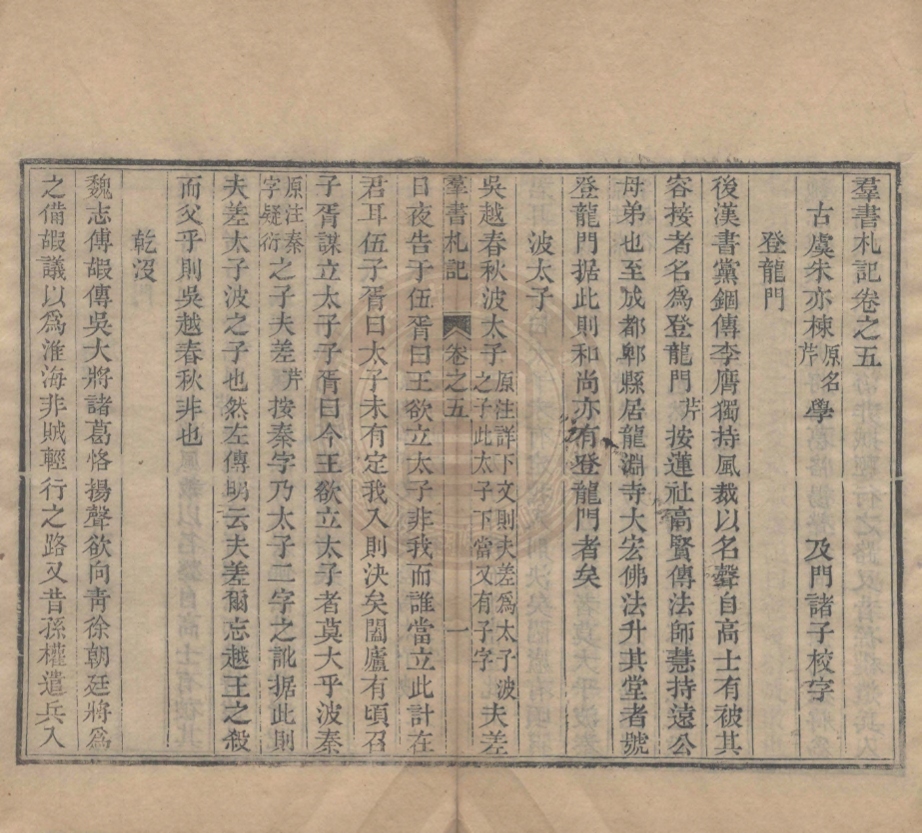 羣書札記卷之五
古虞朱亦棟原名芹學 及門諸子校字
登龍門
後漢書黨錮傳李膺獨持風裁以名聲自高士有被其
容接者名爲登龍門芹按蓮社高賢傳法師慧持遠公
母弟也至成都郫縣居龍淵寺大宏佛法升其堂者號
登龍門据此則和尚亦有登龍門者矣
波太子
吳越春秋波太子原注詳下文則夫差爲太子波之子此太子下當又有子字夫差
羣書札記 卷之五 一
日夜告于伍胥曰王欲立太子非我而誰當立此計在
君耳伍子胥曰太子未有定我入則決矣闔廬有頃召
子胥謀立太子子胥曰今王欲立太子者莫大乎波秦
原注秦字疑衍之子夫差芹按秦字乃太子二字之訛据此則
夫差太子波之子也然左傳明云夫差爾忘越王之殺
而父乎則吳越春秋非也
乾沒
魏志傅嘏傳吳大將諸葛恪揚聲欲向青徐朝廷將爲
之備嘏議以爲淮海非賊輕行之路又昔孫權遣兵入